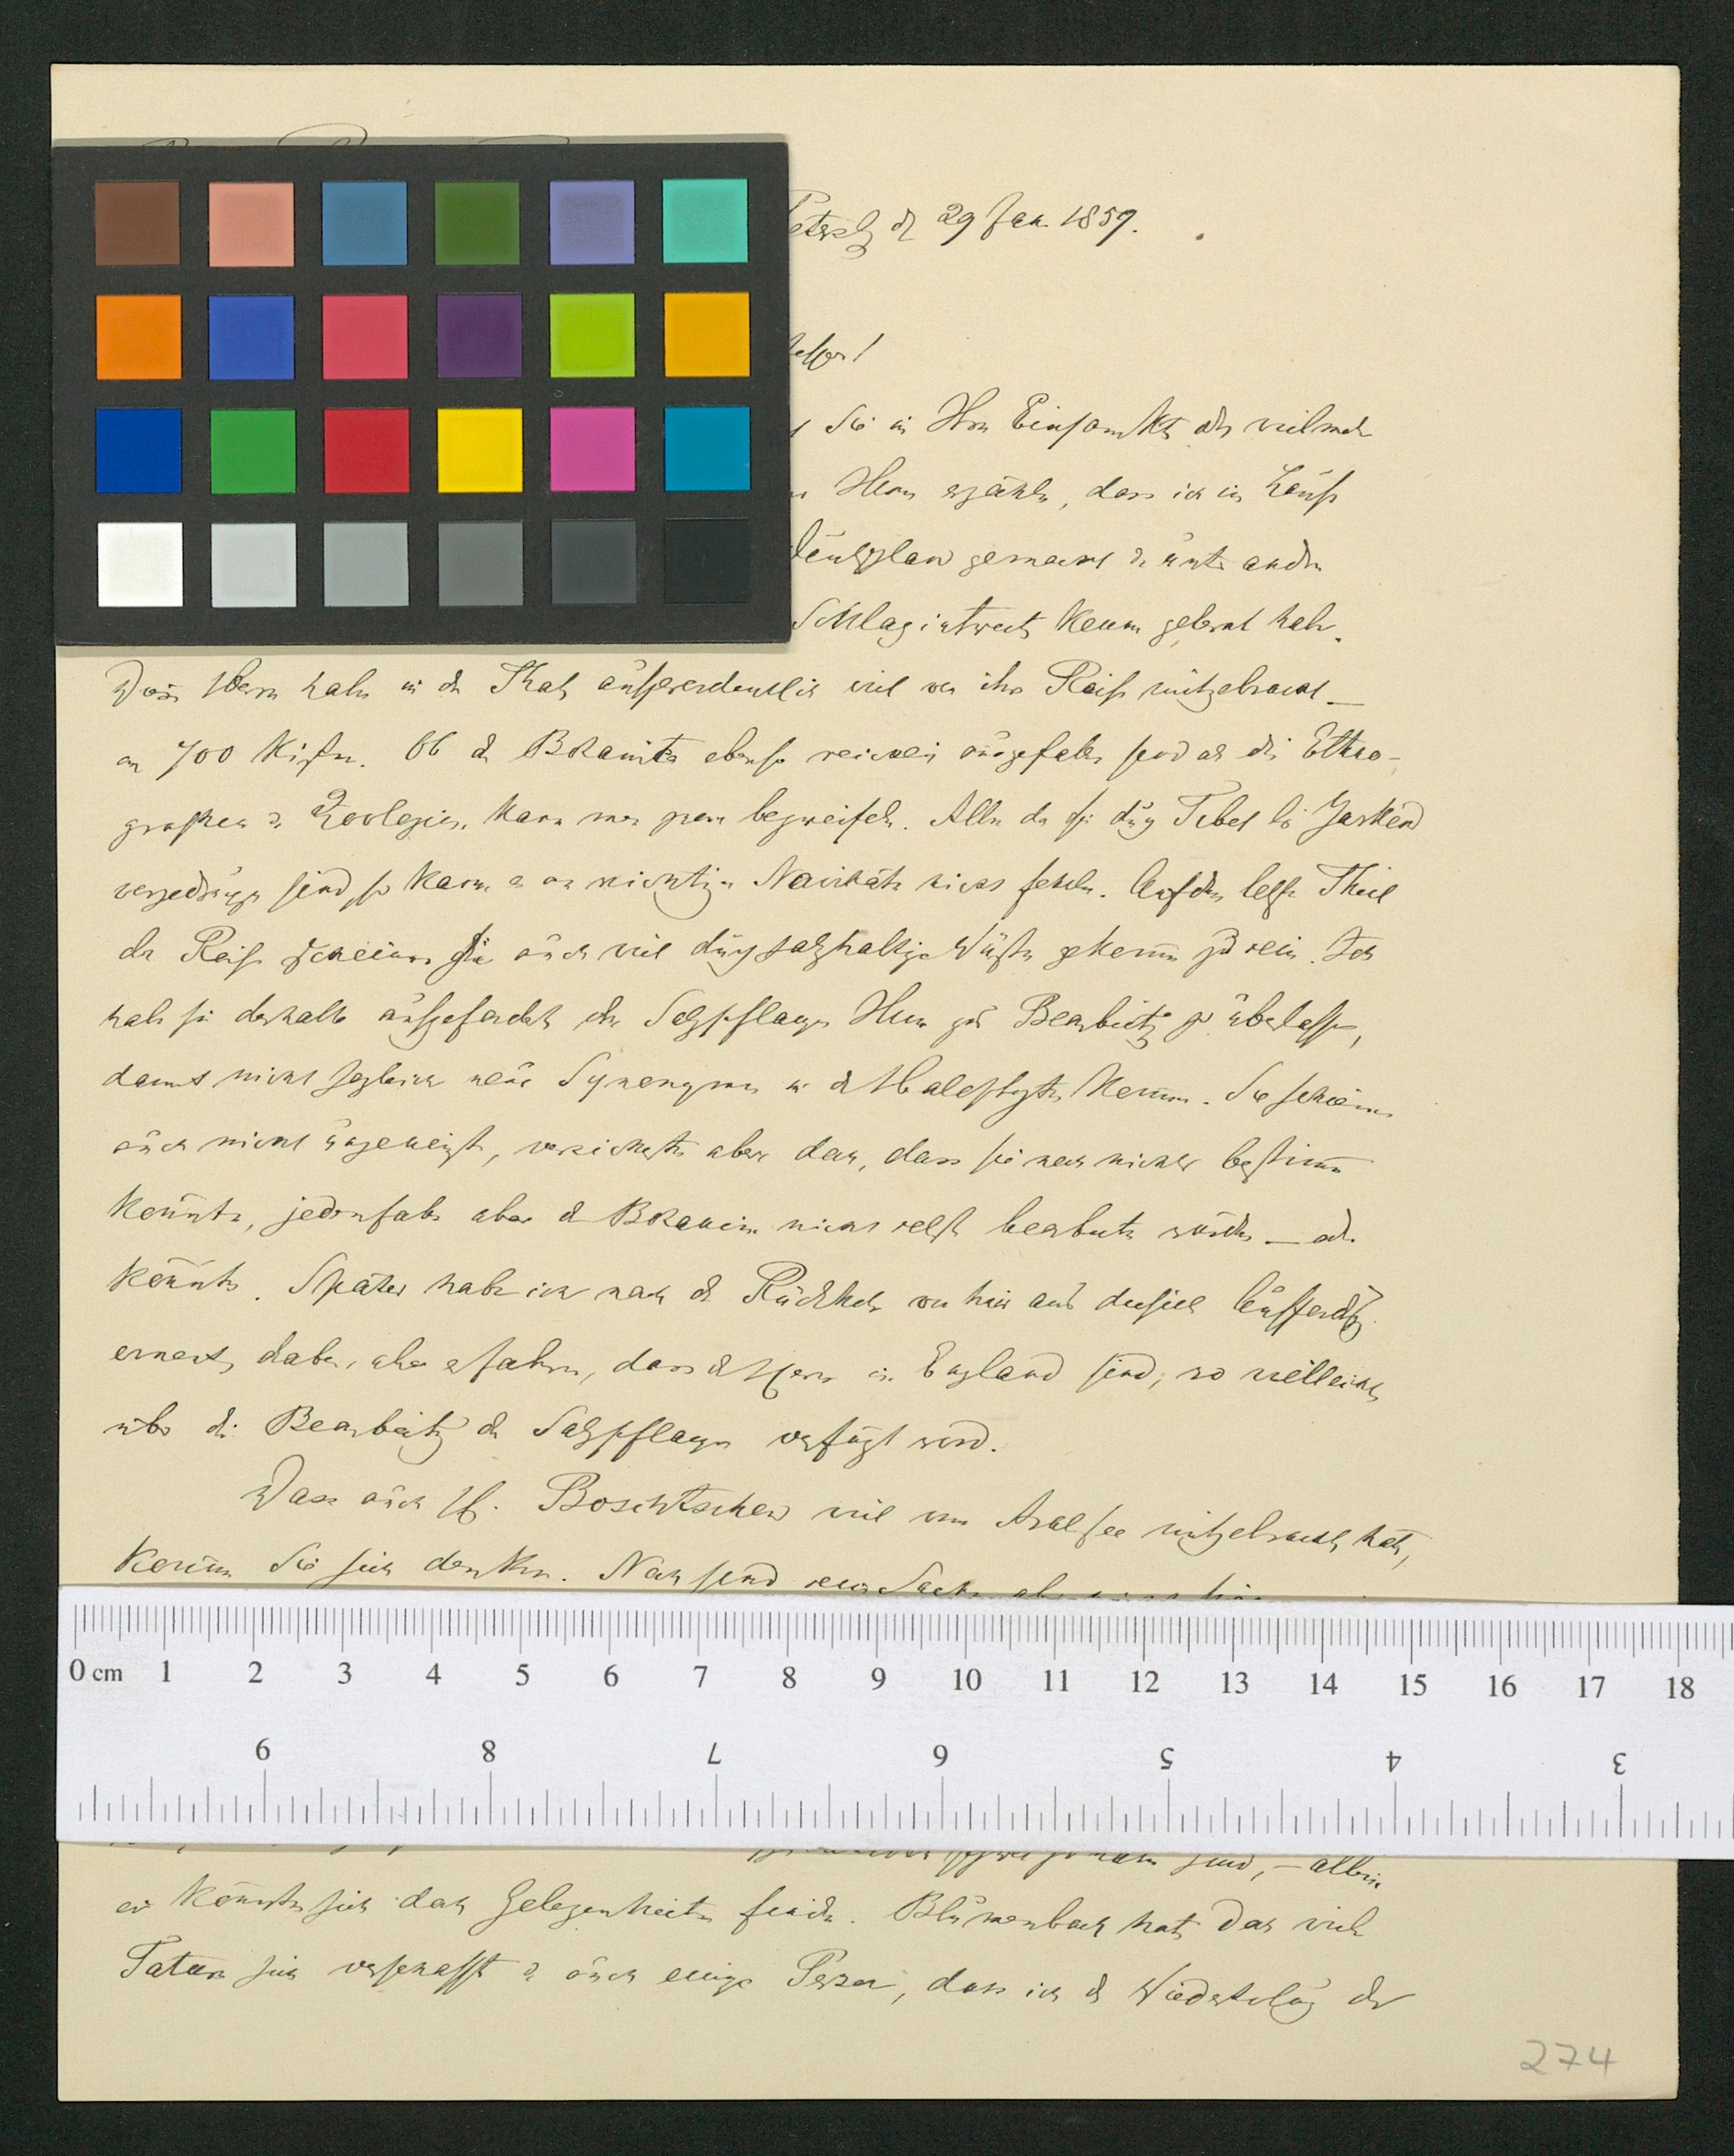 29 Jan. 1859.
Sie in Einsamkt oder vielmehr
erzählen, dass ich im Laufe
gemacht & unter andern
Schlagintweit kennen gelernt habe.
Diese Herrn haben in der That ausserordentlich viel von ihrer Reise mitgebracht —
an 700 Kisten. Ob die ebenso reichlich ausgefallen sind als die Ethno-
graphica & Zoologica, kann man bezweifeln. Allein da sie durch Tibet bis Jarkend
vorgedrungen sind, so kann es an wichtigen nicht fehlen. Auf dem letzten Theil
der Reise scheinen sie auch viel durch salzhaltige Wüsten gekommen zu sein. Ich
habe sie deshalb aufgefordert die Salzpflanzen Ihnen zur Bearbeitg zu überlassen,
damit nicht sogleich neue Synonymen in die Halophyten kommen. Sie schienen
auch nicht ungeneigt, versicherten aber dass sie noch nichts bestimmen
könnten, jedenfalls aber die nicht selbst bearbeiten würden — oder
könnten. Später habe ich nach der Rückkehr von hier aus dieselbe Aufforderg
erneut, dabei aber erfahren, dass die Herrn in England sind, wo vielleicht
über die Bearbeitg der Salzpflanzen verfügt wird.
Dass auch H. viel vom Aralsee mitgebracht hat,
können Sie sich denken. Noch sind seine Sachen
sind, — allein
es könnte sich doch Gelegenheit finden. Blumenbach hat doch viele
Tataren sich verschafft & auch einige Perser, dass ich die der
274
0 cm 1 2 3 4 5 6 7 8 9 10 11 12 13 14 15 16 17 18
9 8 7 6 5 4 3